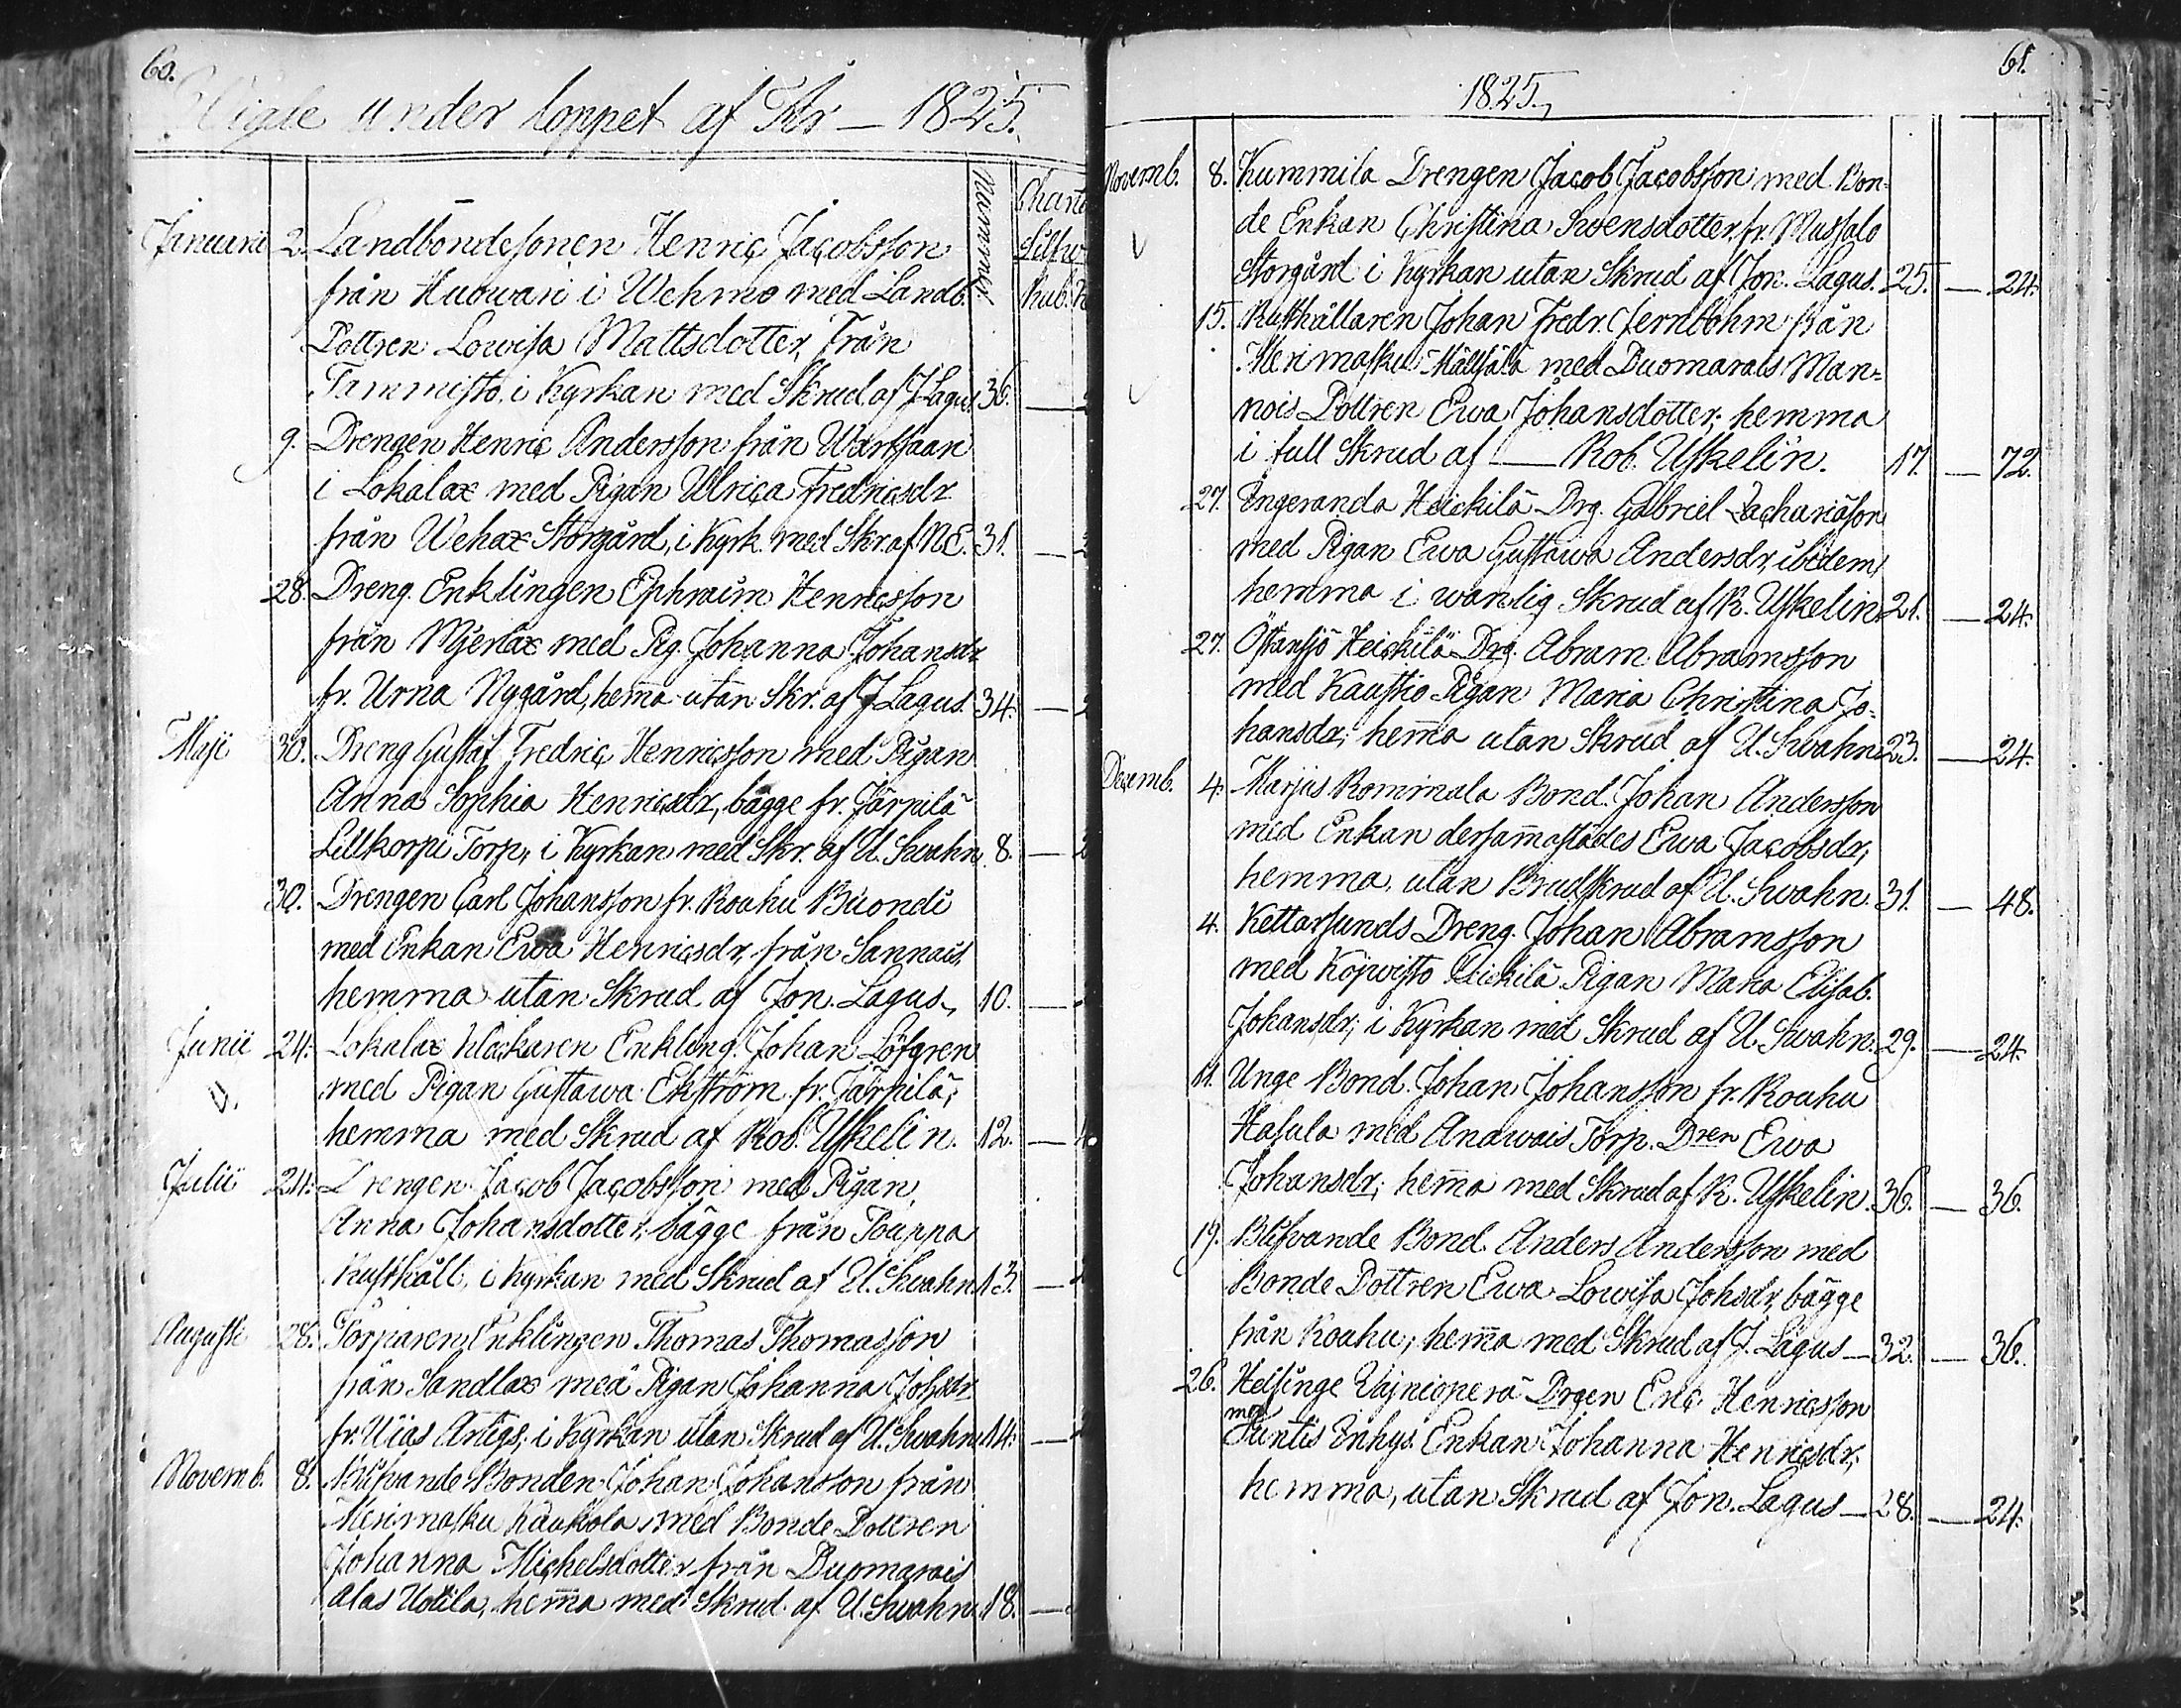 60.
Vigde under loppet af År — 1825.
Nummer.
Chart
Silfw
Rub. K
Januarii 2. Landbondesonen Henric Jacobsson
från Huowari i Wehmo med Landb.
Dottren Lowisa Mattsdotter från
Tammisto, i Kyrkan med Skrud af J Lagus 36. —
9. Drengen Henric Andersson från Wartsaari
i Lokalax med Pigan Ulrica Fredricsdr
från Wehax Storgård, i Kyrk. med Skr. af N.E. 31. —
28. Dreng Enklingen Ephraim Henricsson
från Mjerlax med Pig. Johanna Johansdr
fr. Urna Nygård, hema utan Skr. af J Lagus. 34. —
Maji 30. Dreng Gustaf Fredric Henricsson med Pigan
Anna Sophia Henricsdr, bägge fr. Järpilä
Lillkorpi Torp, i Kyrkan med Skr. af U. Swahn. 8. —
30. Drengen Carl Johansson fr. Roahu Buondi
med Enkan Ewa Henricsdr, från Sannais,
hemma utan Skrud af Jon. Lagus. 10. —
Junii 24. Lokalax Klockaren Enkling. Johan Löfgren
V. med Pigan Gustawa Ekström fr. Järpilä;
hemma med Skrud af Rob. Uskelin. 12. —
Julii 24. Drengen Jacob Jacobsson med Pigan
Anna Johansdotter, bägge från Puppa
Rusthåll, i Kyrkan med Skrud af U. Swahn. 13. —
Augusti 28. Torparen Enklingen Thomas Thomasson
från Sandlax med Pigan Johanna Johsdr
fr. Uias Antigs; i Kyrkan utan Skrud af U. Swahn 14. —
Novemb. 8. Blifvande Bonden Johan Johansson från
Merimasku Kaukola med Bonde Dottren
Johanna Michelsdotter från Duomarais
Alas Uotila, hema med Skrud af U. Swahn. 18. —
61.
1825.
Novemb. 8. Kummila Drengen Jacob Jacobsson med Bon-
de Enkan Christina Swensdotter fr. Mussalo
V Storgård i Kyrkan utan Skrud af Jon. Lagus. 25. — 24.
15. Rusthållaren Johan Fredr. Jernbohm från
Merimasku Mälsälä med Duomarais Man=
V nois Dottren Ewa Johansdotter; hemma
i full Skrud af — Rob. Uskelin. 17. — 72.
27. Engeranda Heickilä Drg. Gabriel Zachariäson
med Pigan Ewa Gustawa Andersdr, ibidem,
hemma i wanlig Skrud af R. Uskelin. 21. — 24.
27. Östansjö Heickilä Drg. Abram Abramsson
med Kaustio Pigan Maria Christina Jo-
hansdr; hema utan Skrud af U. Swahn 23. — 24.
Decemb. 4. Marjus Rommala Bond. Johan Andersson
med Enkan dersamastädes Ewa Jacobsdr,
hemma, utan Brudskrud af U. Swahn. 31. — 48.
4. Kettarsunds Dreng. Johan Abramsson
med Köjwisto Heickilä Pigan Maria Elisab.
Johansdr; i Kyrkan med Skrud af U. Swahn. 29. — 24.
11. Unge Bond. Johan Johansson fr. Roahu
Hasula med Anawais Torp. Dren Ewa
Johansdr; hema med Skrud af R. Uskelin. 36. — 36.
19. Blifvande Bond. Anders Andersson med
Bonde Dottren Ewa Lowisa Johsdr, bägge
från Roahu, hema med Skrud af J. Lagus — 32. — 36.
26. Helsinge Wajnionperä Drgen Eric Henricsson
med
Juntis Inhys Enkan Johanna Henricsdr;
hemma, utan Skrud af Jon. Lagus — 28. — 24.